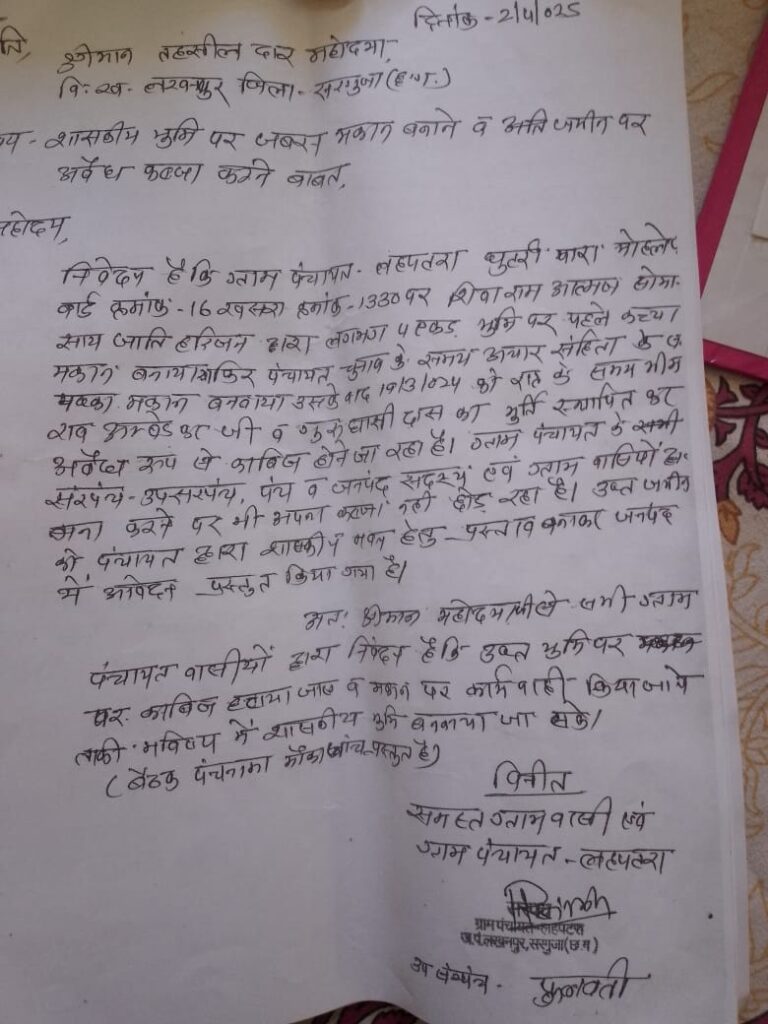 दिनांक - 2/4/025
ति,
श्रीमान तहसील दार महोदया,
वि. ख. लखनपुर जिला - सरगुजा (छ.ग.)
षय - शासकीय भूमि पर जबरन मकान बनाने व अति जमीन पर
अवैध कब्जा करने बाबत,
महोदय,
निवेदन है कि ग्राम पंचायत - लहपटरा धुतरी पारा मोहल्ले
वार्ड क्रमांक - 16 खसरा क्रमांक - 1330 पर शिवा राम आत्मज होमा
साय जाति हरिजन द्वारा लगभग 4 एकड़ भूमि पर पहले कच्चा
मकान बनाया फिर पंचायत चुनाव के समय आचार संहिता के
पक्का मकान बनवाया उसके बाद 19/3/024 को रात के समय भीम
राव अम्बेडकर जी व गुरु घासी दास का मुर्ति स्थापित कर
अवैध रूप से काबिज होने जा रहा है। ग्राम पंचायत के सभी
संरपंच - उपसरपंच, पंच व जनपद सदस्य एवं ग्राम वासियों
मना करने पर भी अपना कब्जा नही छोड़ रहा है। उक्त जमीन
को पंचायत द्वारा शासकीय भवन हेतु प्रस्ताव बनाकर जनपद
में आवेदन प्रस्तुत किया गया है।
अतः श्रीमान महोदया जी से सभी ग्राम
पंचायत वासीयों द्वारा निवेदन है कि उक्त भूमि पर
पर काबिज हटाया जाए व मकान पर कार्यवाही किया जाये
ताकी भविष्य में शासकीय भुमि बनवाया जा सके।
(बैठक पंचनामा मौका जांच प्रस्तुत है)
विनीत
समस्त ग्राम वासी एवं
ग्राम पंचायत - लहपटरा
सरपंच
ग्राम पंचायत-लहपटरा
ज.पं.लखनपुर, सरगुजा (छ.ग)
उप सरपंच - फुलवती